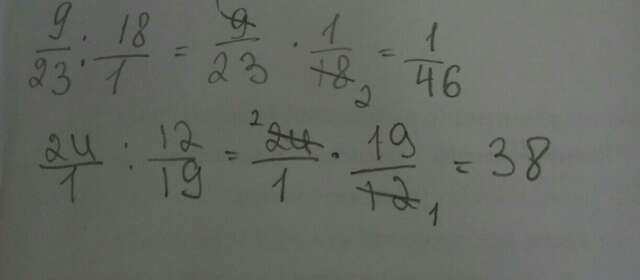 9/23 : 18/1 = 9/23 · 1/18 2 = 1/46
24/1 : 12/19 = 2 24/1 · 19/12 1 = 38